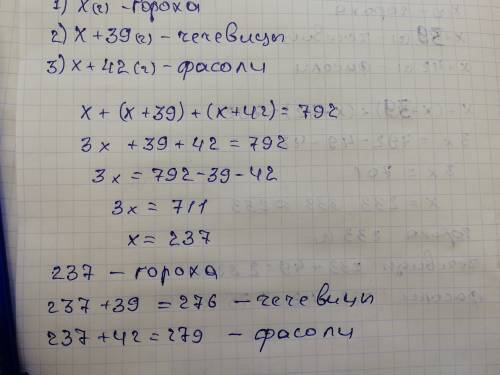 1) x(г) - гороха
2) x + 39(г) - чечевицы
3) x + 42(г) - фасоли
x + (x+39) + (x+42) = 792
3x + 39 + 42 = 792
3x = 792 - 39 - 42
3x = 711
x = 237
237 - гороха
237 + 39 = 276 - чечевицы
237 + 42 = 279 - фасоли